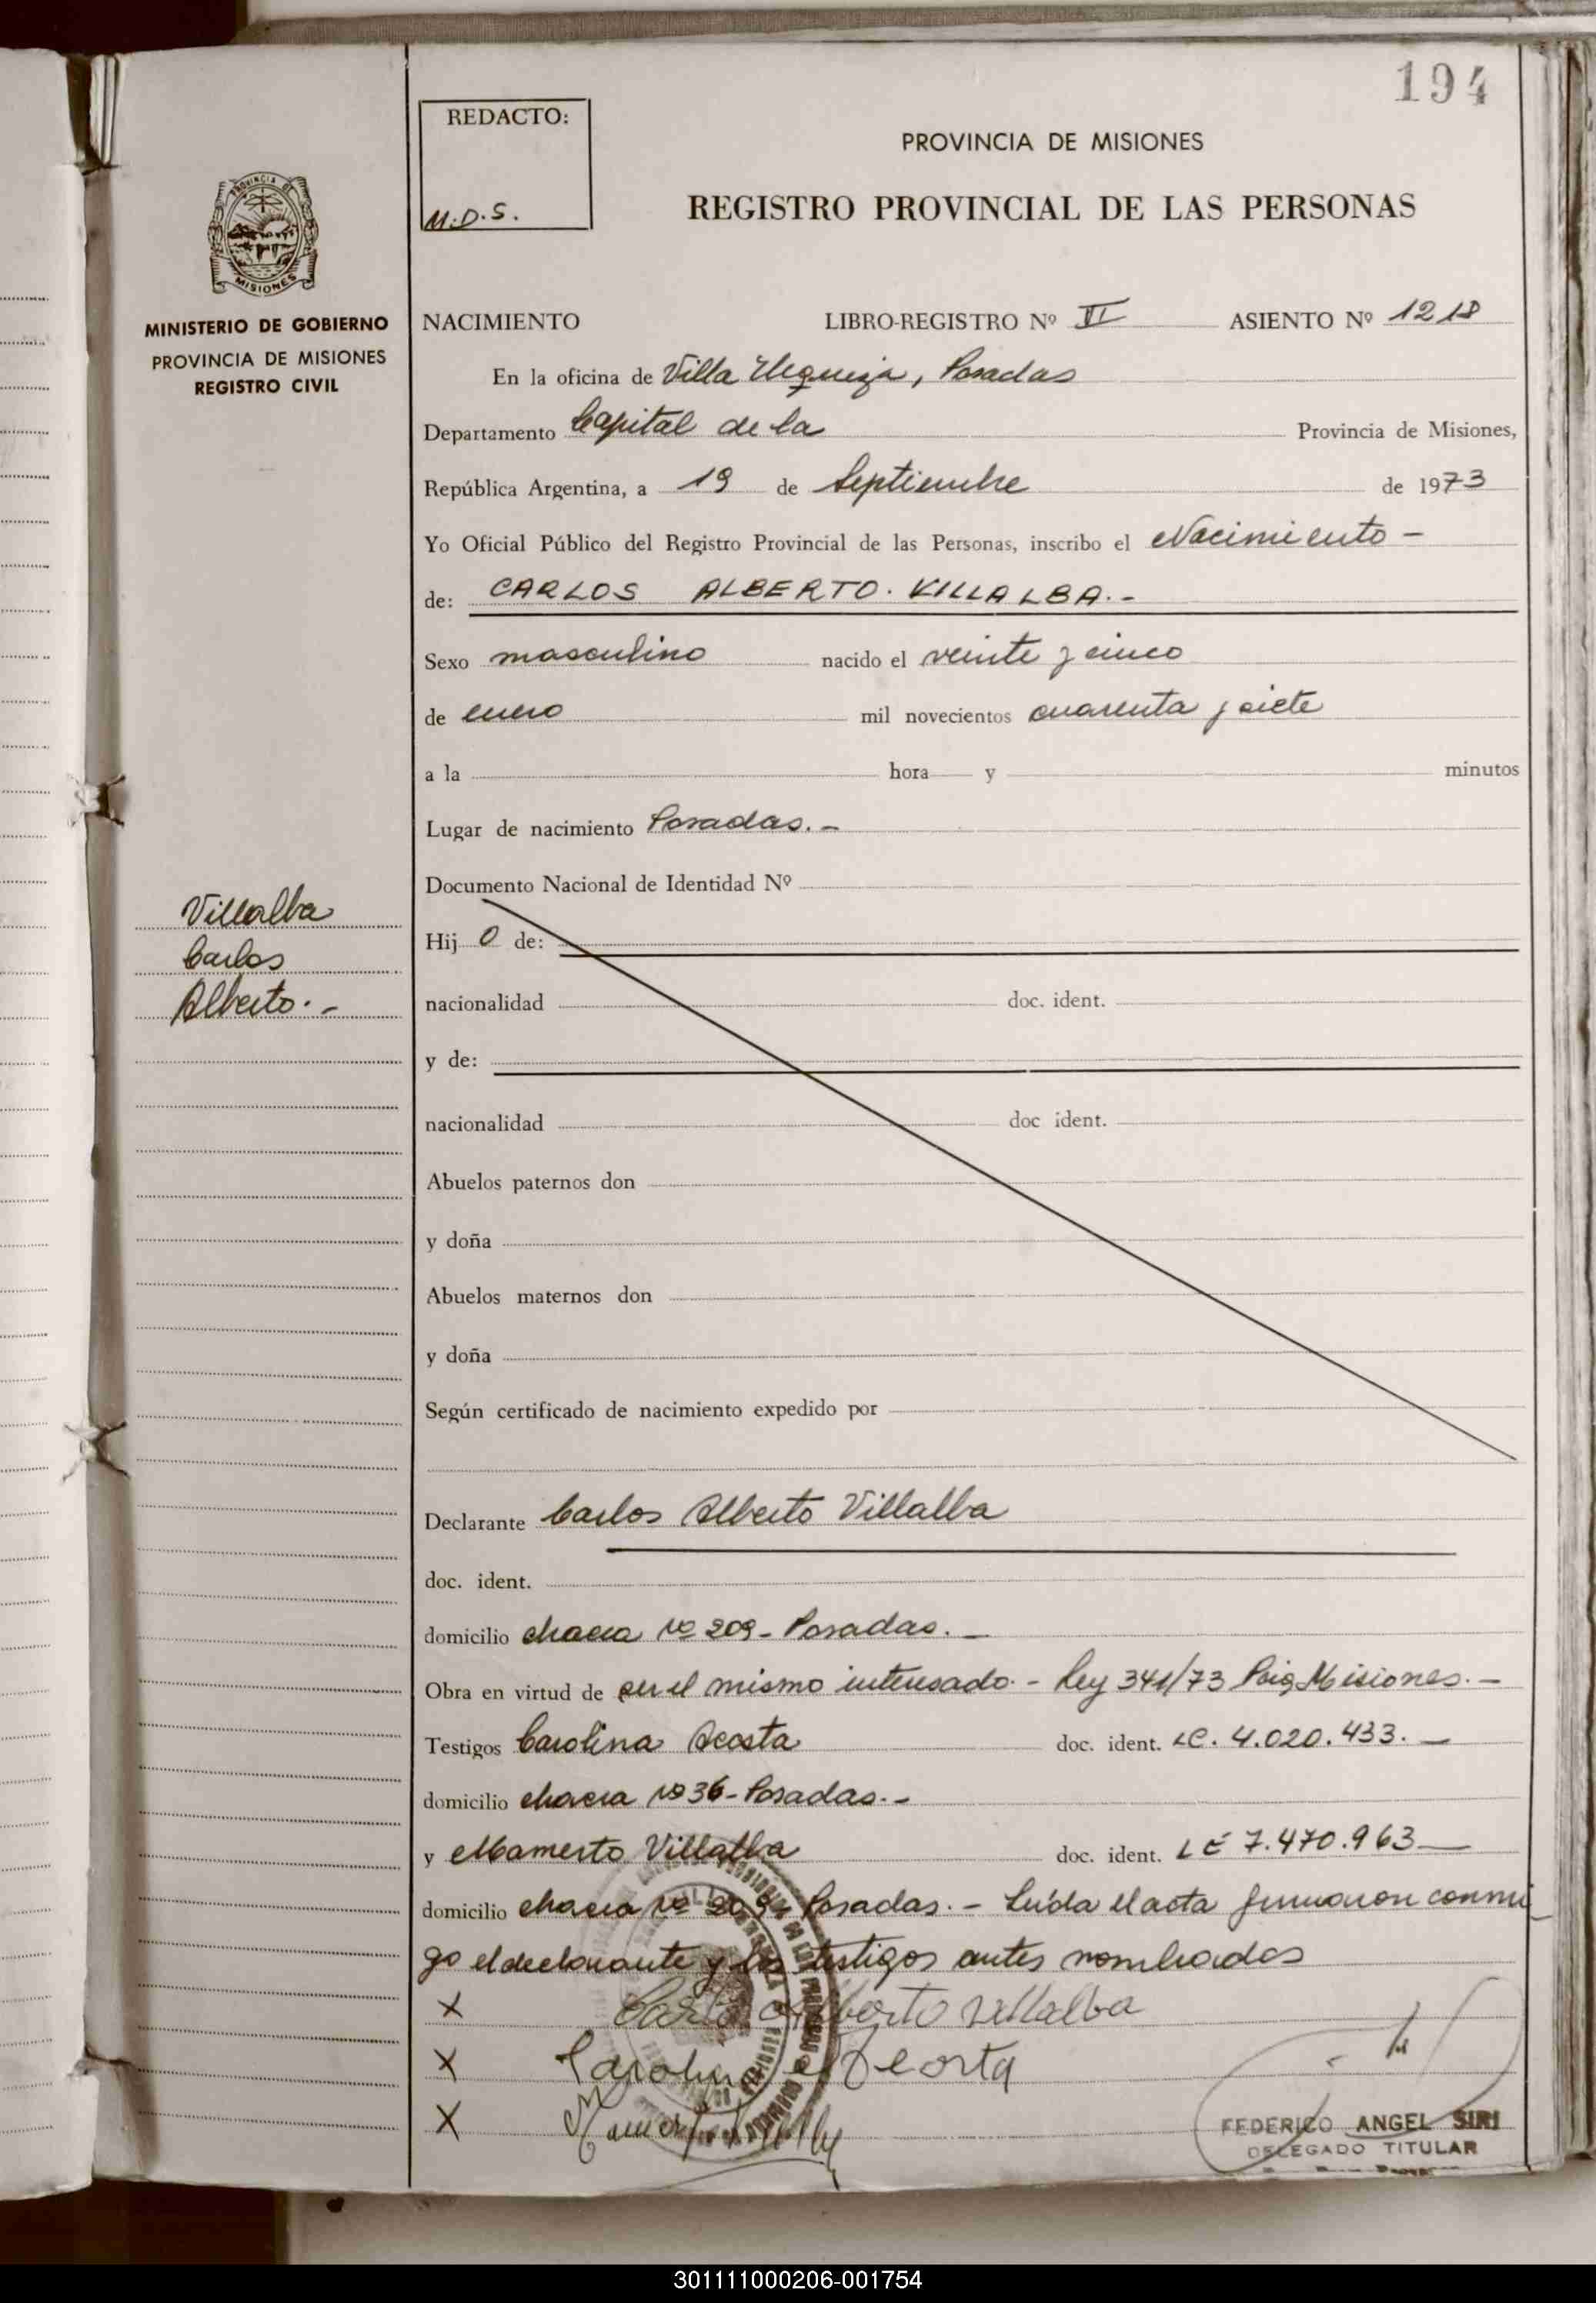 194
REDACTO:
M.D.S.
PROVINCIA DE MISIONES
REGISTRO PROVINCIAL DE LAS PERSONAS
PROVINCIA DE
MISIONES
MINISTERIO DE GOBIERNO
PROVINCIA DE MISIONES
REGISTRO CIVIL
NACIMIENTO LIBRO-REGISTRO Nº VI ASIENTO Nº 1218
En la oficina de Villa Urquiza, Posadas
Departamento Capital de la Provincia de Misiones,
República Argentina, a 19 de Septiembre de 1973
Yo Oficial Público del Registro Provincial de las Personas, inscribo el Nacimiento -
de: CARLOS ALBERTO. VILLALBA.-
Sexo masculino nacido el veinte y cinco
de enero mil novecientos cuarenta y siete
a la hora y minutos
Lugar de nacimiento Posadas.-
Documento Nacional de Identidad Nº
Villalba
Carlos
Alberto.-
Hij o de:
nacionalidad doc. ident.
y de:
nacionalidad doc ident.
Abuelos paternos don
y doña
Abuelos maternos don
y doña
Según certificado de nacimiento expedido por
Declarante Carlos Alberto Villalba
doc. ident.
domicilio chacra Nº 209 - Posadas.-
Obra en virtud de ser el mismo interesado.- Ley 341/73 Misiones.-
Testigos Carolina Acosta doc. ident. LC. 4.020.433.-
domicilio chacra Nº 36 - Posadas.-
y Mamerto Villalba doc. ident. LE 7.470.963-
domicilio chacra Nº 209 - Posadas.- Leída el acta firmaron conmi
go el declarante y los testigos antes nombrados
X Carlos Alberto Villalba
X Carolina Acosta
X
FEDERICO ANGEL SIRI
DELEGADO TITULAR
301111000206-001754